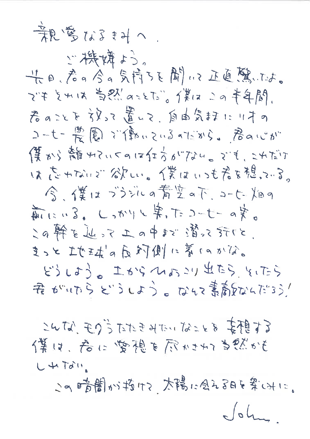 親愛なるきみへ、
ご機嫌よう。
先日、君の今の気持ちを聞いて正直驚いたよ。
でもそれは当然のことだ。僕はこの半年間、
君のことを放って置いて、自由気ままにリオの
コーヒー農園で働いているのだから。君の心が
僕から離れていくのは仕方がない。でも、これだけ
は忘れないで欲しい。僕はいつも君を想っている。
今、僕はブラジルの青空の下、コーヒー畑の
前にいる。しっかりと実ったコーヒーの実。
この幹を辿って土の中まで潜って行くと、
きっと地球の反対側に着くのかな。
どうしよう。土からひょっこり出たら、そしたら
君がいたらどうしよう。なんて素敵なんだろう!
こんな、モグラたたきみたいなことを妄想する
僕は、君に愛想を尽かされて当然かも
しれない。
この暗闇から抜けて、太陽に会える日を楽しみに。
John